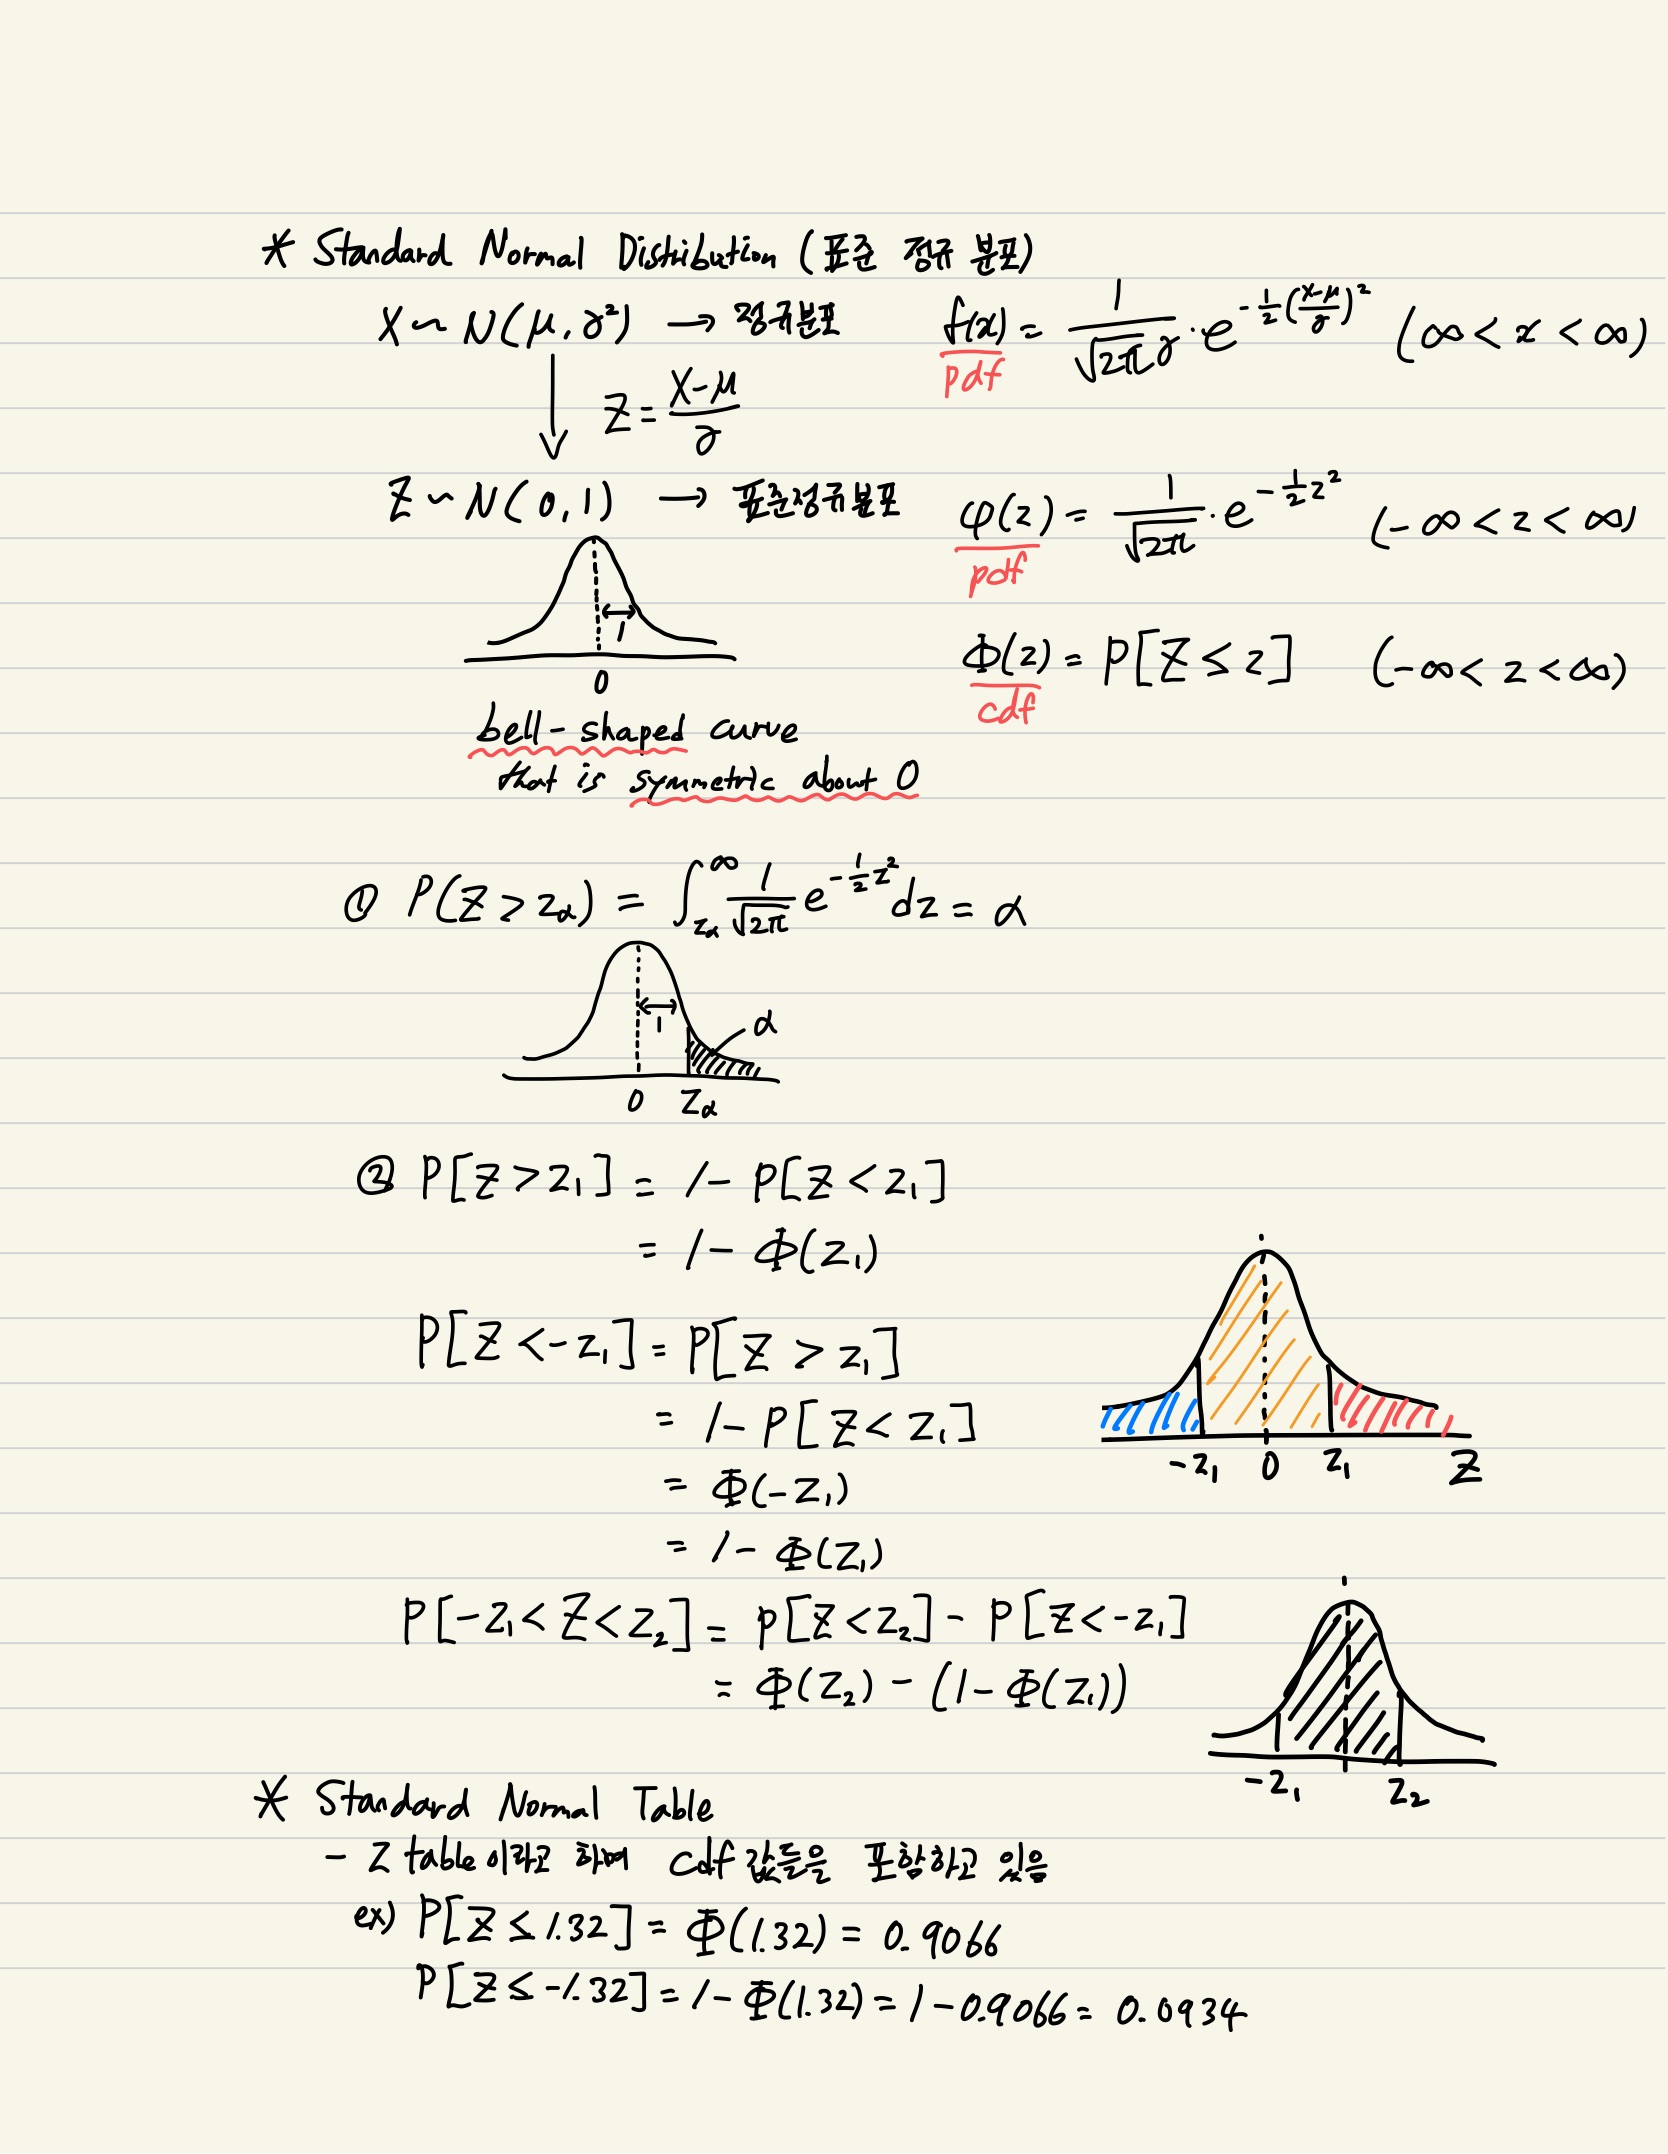 * Standard Normal Distribution (표준 정규 분포)
X ~ N(μ, σ²) → 정규분포
f(x) = 1/(√2π σ) · e^(-1/2((x-μ)/σ)²) (∞ < x < ∞)
pdf
Z = (X-μ)/σ
Z ~ N(0, 1) → 표준정규분포
φ(z) = 1/√2π · e^(-1/2 z²) (-∞ < z < ∞)
pdf
1
0
Φ(z) = P[Z ≤ z] (-∞ < z < ∞)
cdf
bell-shaped curve
that is symmetric about 0
① P(Z > zα) = ∫_zα^∞ 1/√2π e^(-1/2 z²) dz = α
1
α
0 Zα
② P[Z > z₁] = 1 - P[Z < z₁]
= 1 - Φ(z₁)
P[Z < -z₁] = P[Z > z₁]
= 1 - P[Z < z₁]
= Φ(-z₁)
= 1 - Φ(z₁)
-z₁ 0 z₁ Z
P[-z₁ < Z < z₂] = P[Z < z₂] - P[Z < -z₁]
= Φ(z₂) - (1 - Φ(z₁))
-z₁ z₂
* Standard Normal Table
- Z table이라고 하며 cdf 값들을 포함하고 있음
ex) P[Z ≤ 1.32] = Φ(1.32) = 0.9066
P[Z ≤ -1.32] = 1 - Φ(1.32) = 1 - 0.9066 = 0.0934